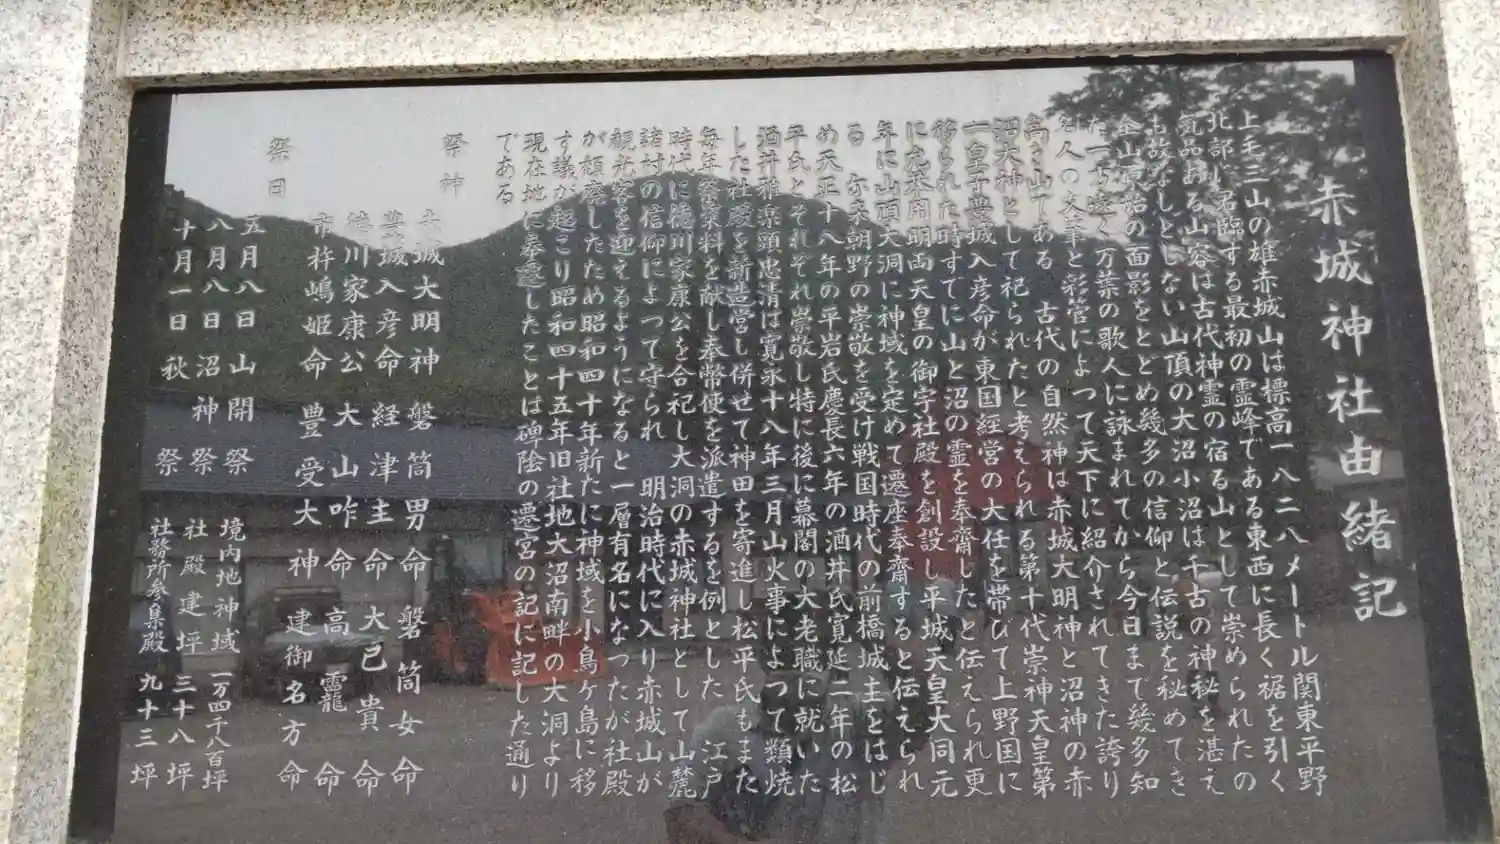 赤城神社由緒記
上毛三山の雄赤城山は標高一八二八メートル関東平野
北部に君臨する最初の霊峰である東西に長く裾を引く
気品ある山容は古代神霊の宿る山として崇められたの
も故なしとしない山頂の大沼小沼は千古の神秘を湛え
全山原始の面影をとどめ幾多の信仰と伝説を秘めてき
た 遠く万葉の歌人に詠まれてから今日まで幾多知
名人の文筆と彩管によつて天下に紹介されてきた誇り
高き山である 古代の自然神は赤城大明神と沼神の赤
沼大神として祀られたと考えられる第十代崇神天皇第
一皇子豊城入彦命が東国経営の大任を帯びて上野国に
移られた時すでに山と沼の霊を奉齋したと伝えられ更
に允恭用明両天皇の御宇社殿を創設し平城天皇大同元
年に山頂大洞に神域を定めて遷座奉齋すると伝えられ
る 尓来朝野の崇敬を受け戦国時代の前橋城主をはじ
め天正十八年の平岩氏慶長六年の酒井氏寛延二年の松
平氏とそれぞれ崇敬し特に後に幕閣の大老職に就いた
酒井雅楽頭忠清は寛永十八年三月山火事によつて類焼
した社殿を新造営し併せて神田を寄進し松平氏もまた
毎年祭粢料を献し奉幣使を派遣するを例とした 江戸
時代に徳川家康公を合祀し大洞の赤城神社として山麓
諸村の信仰によつて守られ 明治時代に入り赤城山が
観光客を迎えるようになると一層有名になつたが社殿
が頽廃したため昭和四十年新たに神域を小鳥ヶ島に移
す議が起こり昭和四十五年旧社地大沼南畔の大洞より
現在地に奉遷したことは碑陰の遷宮の記に記した通り
である
祭神
赤城大明神 磐筒男命 磐筒女命
豊城入彦命 経津主命 大己貴命
徳川家康公 大山咋命 高龗命
市杵嶋姫命 豊受大神 建御名方命
祭日
五月八日 山開祭 境内地神域 一万四千八百坪
八月八日 沼神祭 社殿建坪 三十八坪
十月一日 秋祭 社務所参集殿 九十三坪